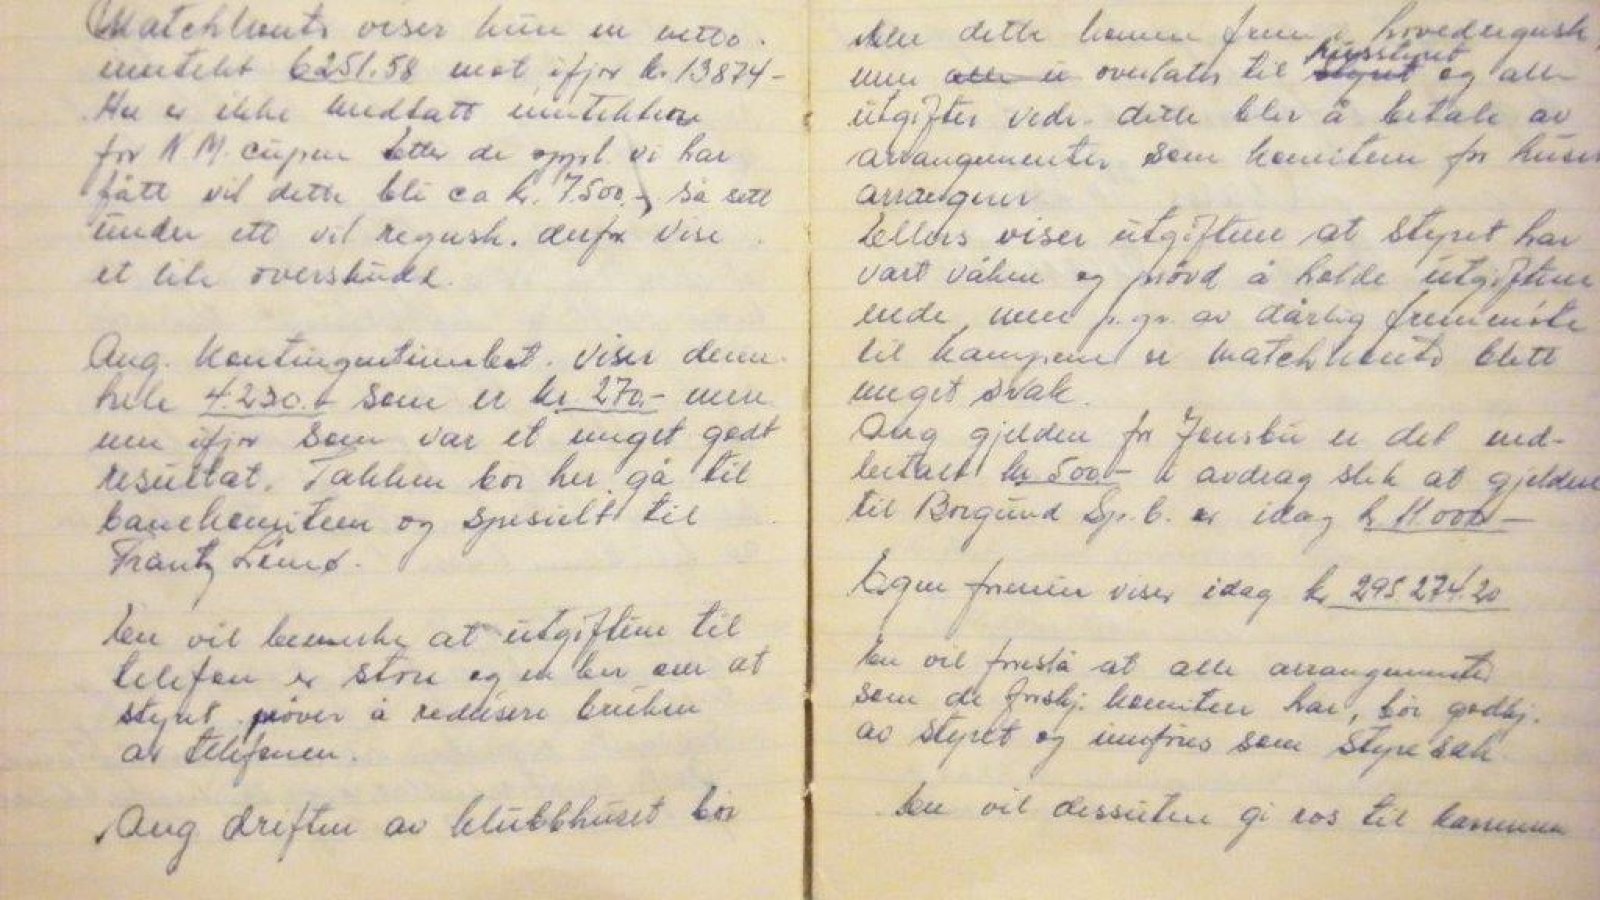 Matchkonto viser kun en netto.
inntekt 6251.58 mot ifjor kr. 13874-
Her er ikke medtatt inntekten
for N M. cupen Etter de oppl. vi har
fått vil dette bli ca kr. 7500,- så sett
under ett vil regnsk. derfor vise
et lite overskudd.
Ang. Kontingentinnbet. viser denne
hele 4230.- som er kr 270.- men
enn ifjor som var et meget godt
resultat. Takken bør her gå til
banekomiteen og spesielt til
Frantz
En vil bemerke at utgiftene til
telefon er store og en ber om at
styret prøver å redusere bruken
av telefonen.
Ang driften av klubbhuset bør
dette komme frem i hovedregnsk,
men overlates til husstyret og alle
utgifter vedr. dette blir å betale av
arrangementer som komiteen for huset
arrangerer
Ellers viser utgiftene at styret har
vært våken og prøvd å holde utgiftene
nede, men p.gr. av dårlig fremmøte
til kampene er matchkonto blitt
meget svak.
Ang gjelden for Jensbu er det ned-
betalt kr 500.- i avdrag slik at gjelden
til Borgund Sp.b. er idag kr 11000-
Egen formue viser idag kr 295 274.20
En vil foreslå at alle arrangementer
som de forskj. komiteer har, bør godkj.
av styret og innføres som styresak.
En vil dessuten gi ros til